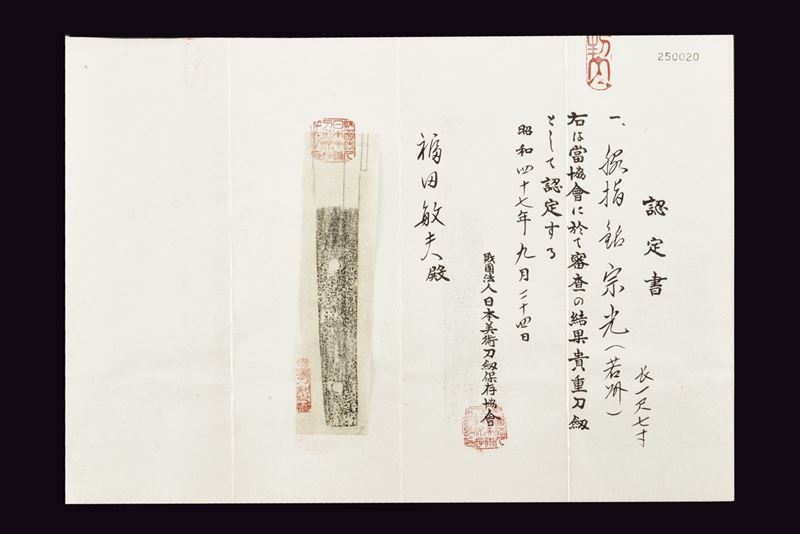 250020
認定書
一、脇指 銘 宗光(若州)
長一尺七寸
右は當協會に於て審査の結果貴重刀劔
として認定する
昭和四十七年九月二十四日
財團法人日本美術刀劔保存協會
福田敏夫殿